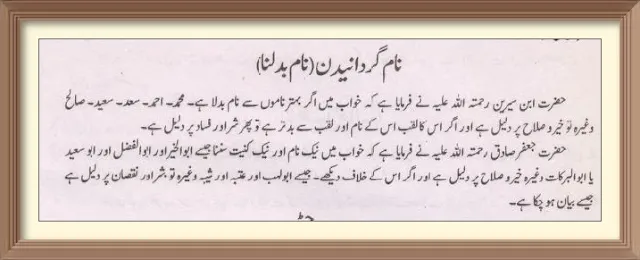 نام گردانیدن (نام بدلنا)
حضرت ابن سیرین رحمتہ اللہ علیہ نے فرمایا ہے کہ خواب میں اگر بہتر ناموں سے نام بدلا ہے۔ محمد۔ احمد۔ سعد۔ سعید۔ صالح
وغیرہ تو خیر و صلاح پر دلیل ہے اور اگر اس کا لقب اس کے نام اور لقب سے بدتر ہے تو پھر شر اور فساد پر دلیل ہے۔
حضرت جعفر صادق رحمتہ اللہ علیہ نے فرمایا ہے کہ خواب میں نیک نام اور نیک کنیت سننا جیسے ابوالخیر اور ابوالفضل اور ابو سعید
یا ابوالبرکات وغیرہ خیر و صلاح پر دلیل ہے اور اگر اس کے خلاف دیکھے۔ جیسے ابولہب اور عتبہ اور شیبہ وغیرہ تو شر اور نقصان پر دلیل ہے
جیسے بیان ہو چکا ہے۔